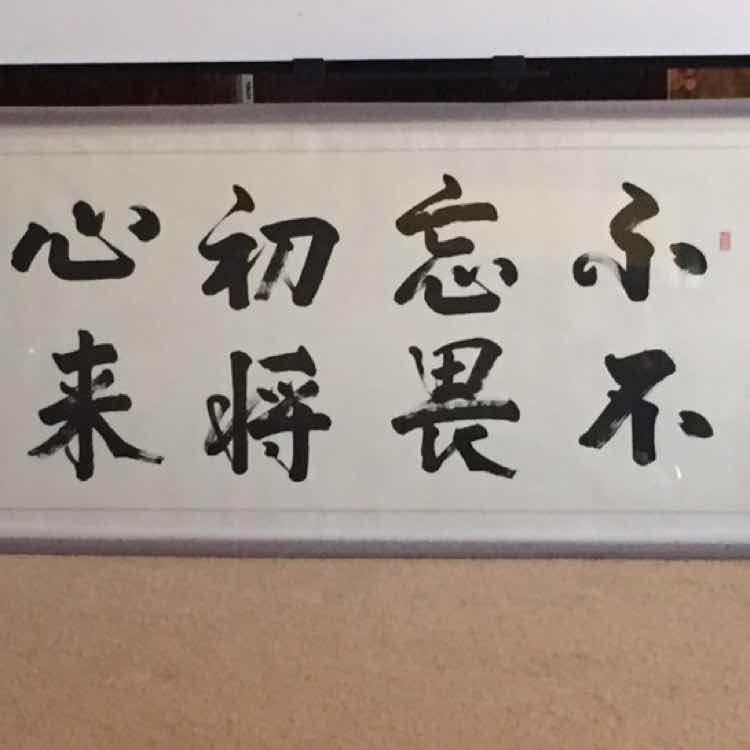 不忘初心
不畏将来